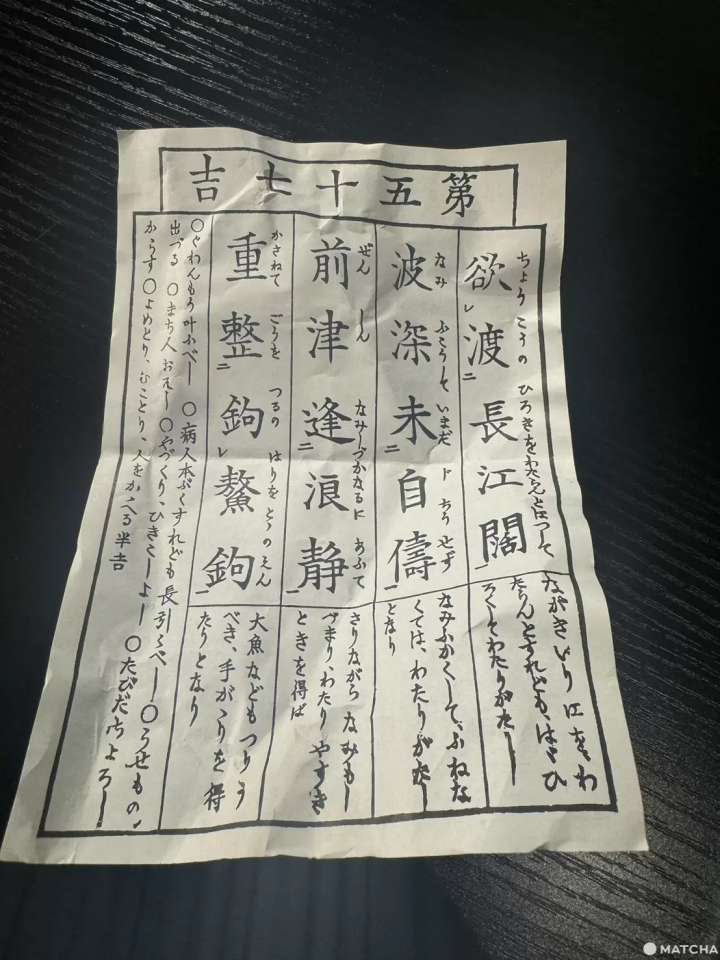 第五十七吉
ちょうこうのひろきをわたらんとほつして
欲レ渡二長江闊一
ながきいり江をわ
たらんとすれども、はゞひ
ろくてわたりがたし
なみふこうしていまだ ド ちうせず
波深未二自儔一
なみふかくして、ふねな
くては、わたりがたし
となり
ぜんしんなみしづかなるにあふて
前津逢二浪静一
さりながらなみもし
づまり、わたりやすき
ときを得ば
かさねてごうをつるのはりをとゝのえん
重整二鉤レ鰲鉤一
大魚などもつりう
べき、手がゝりを得
たりとなり
○ぐわんもう叶ふべし ○病人本ぷくすれども長引くべし ○うせもの
出づる ○まち人おそし ○やづくり、ひきこしよし ○たびだちよろし
からす ○よめとり、むことり、人をかゝへる半吉
MATCHA